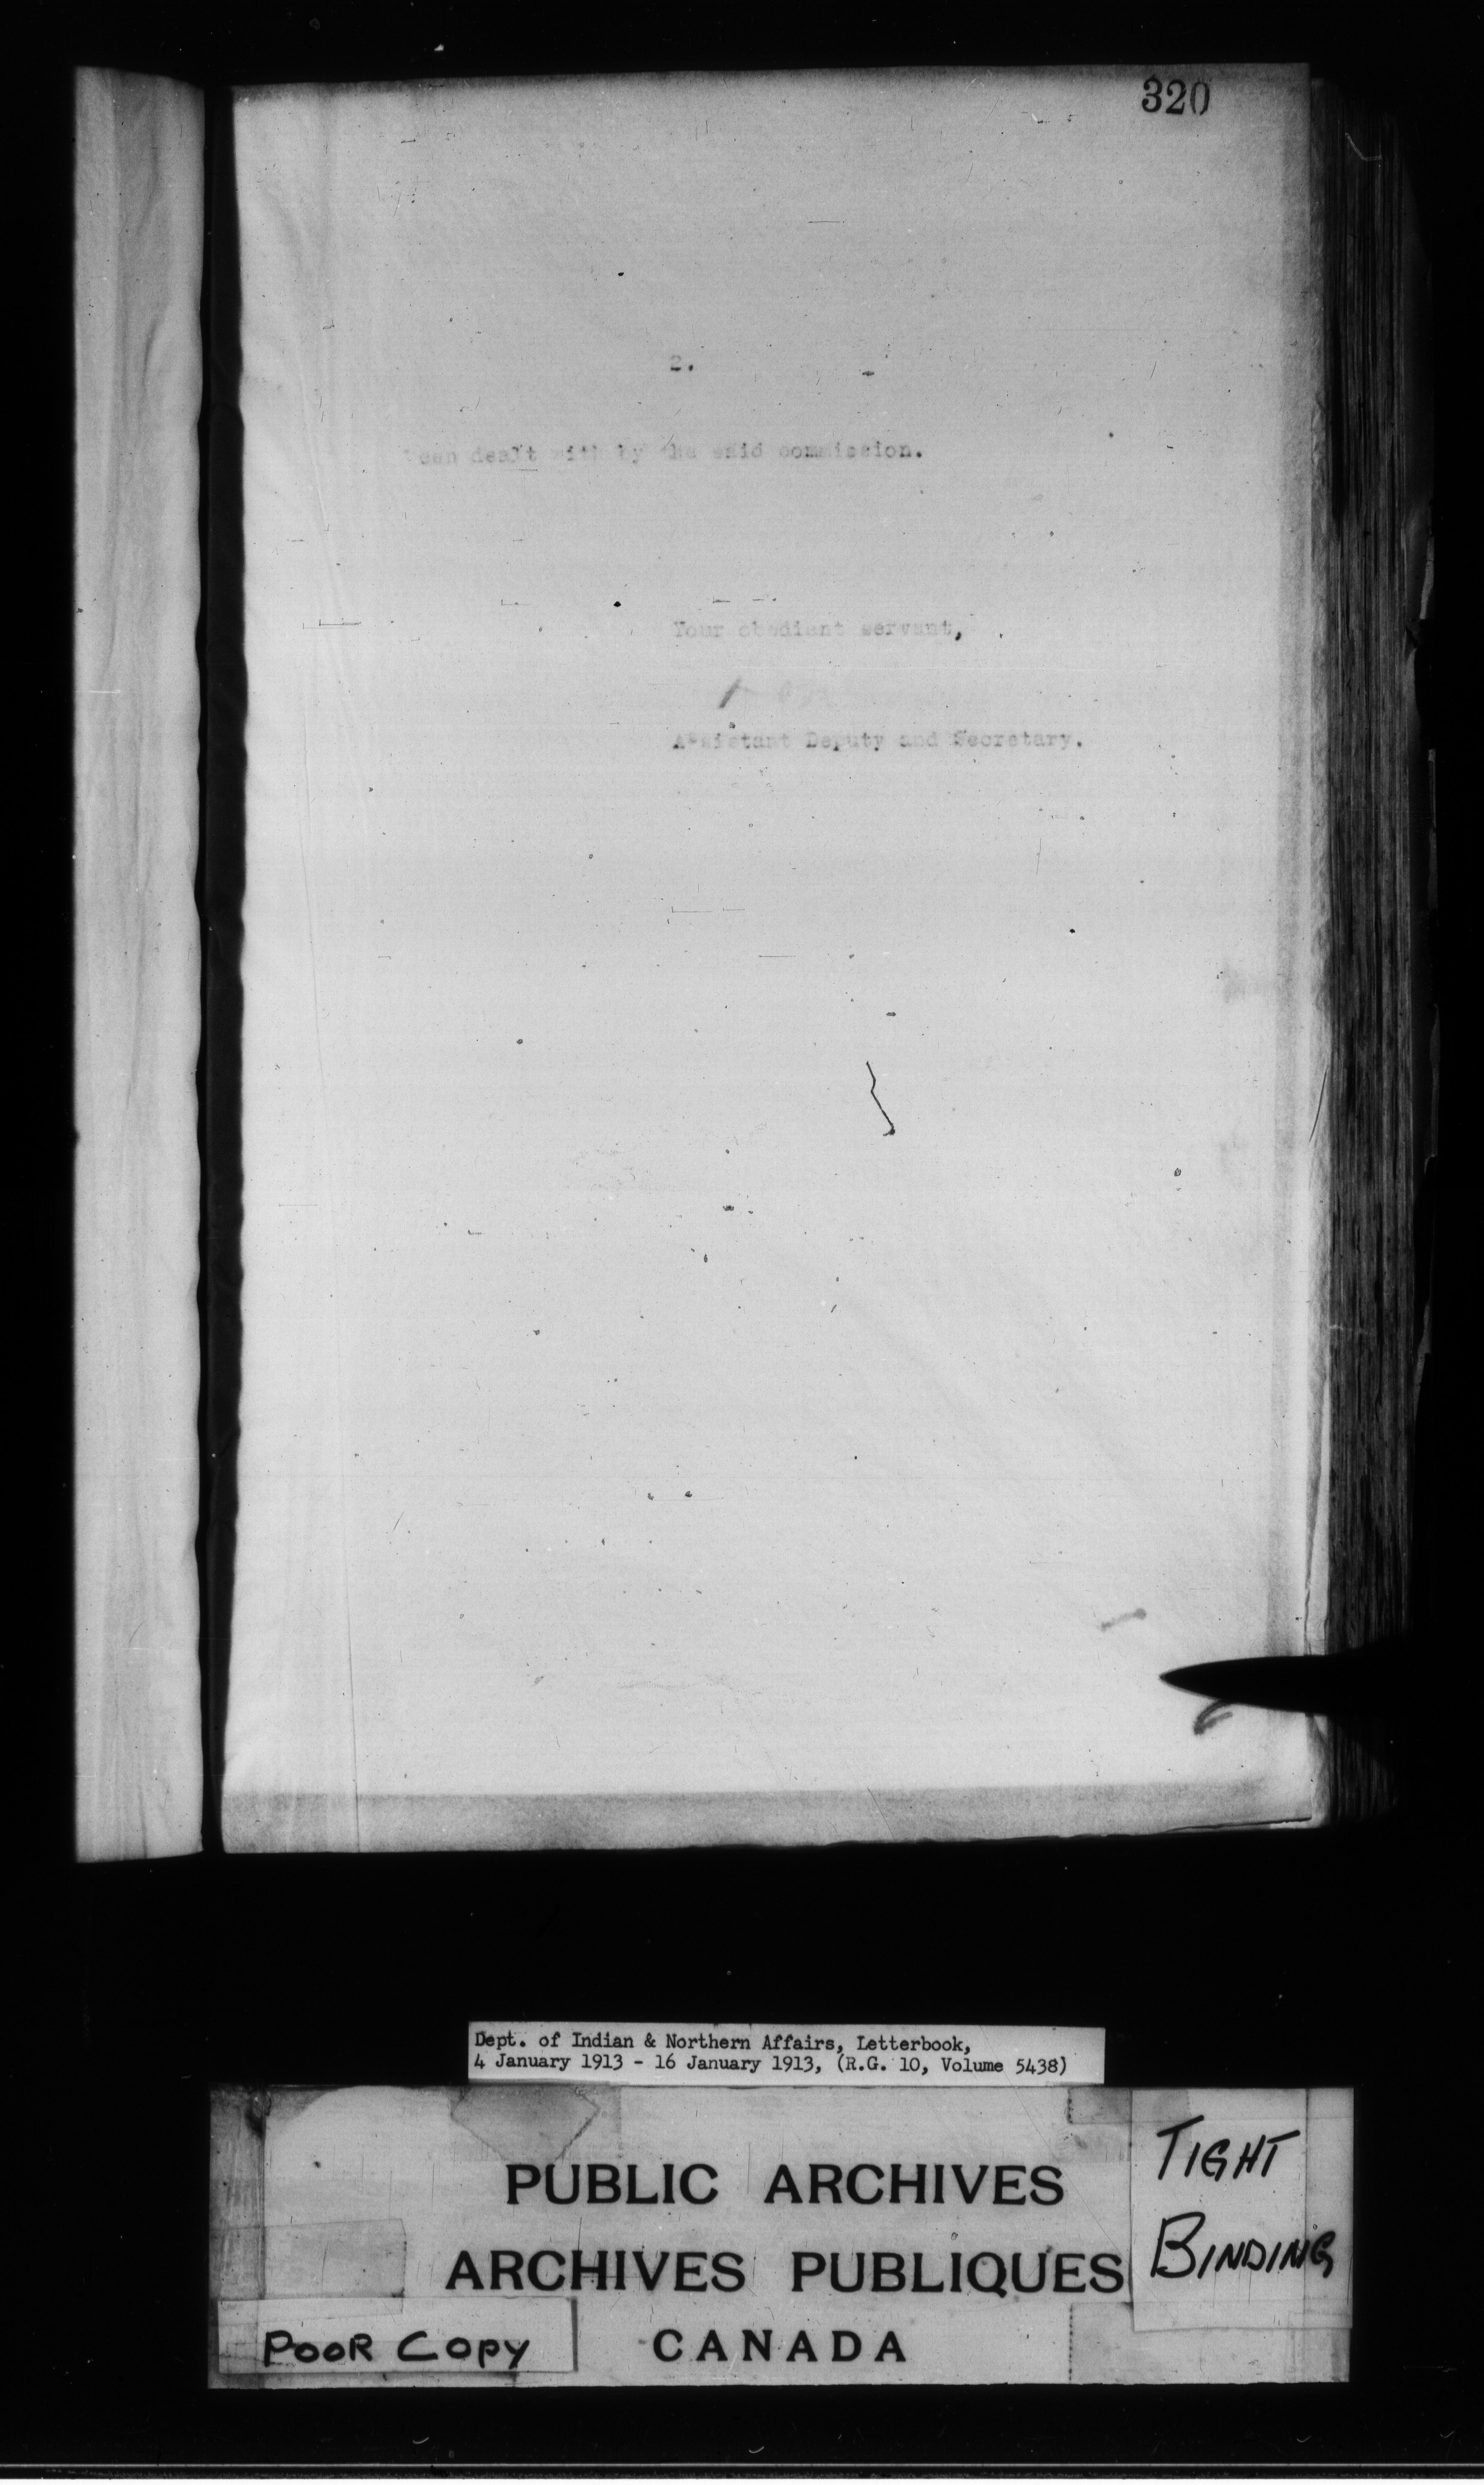 320
2.
been dealt with by the said commission.
Your obedient servant,
Assistant Deputy and Secretary.
Dept. of Indian & Northern Affairs, Letterbook,
4 January 1913 - 16 January 1913, (R.G. 10, Volume 5438)
PUBLIC ARCHIVES
ARCHIVES PUBLIQUES
CANADA
TIGHT
BINDING
POOR COPY